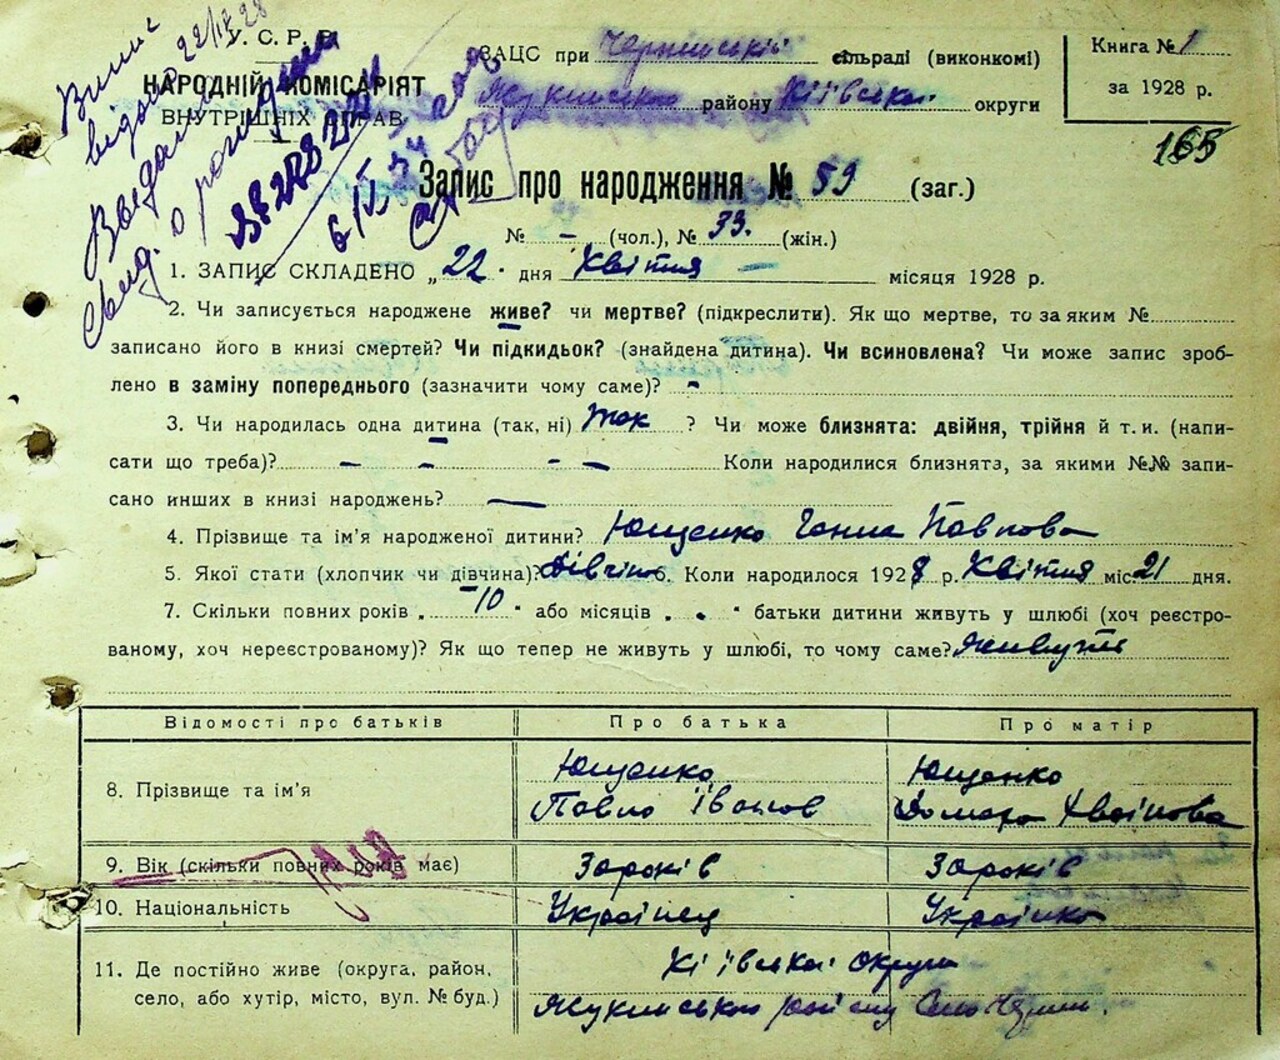 У. С. Р. Р.
НАРОДНІЙ КОМІСАРІЯТ
ВНУТРІШНІХ СПРАВ
ЗАЦС при сільраді (виконкомі)
району Київської округи
Книга № 1
за 1928 р.
165
Запис про народження № 59 (заг.)
№ - (чол.), № 33. (жін.)
1. ЗАПИС СКЛАДЕНО „22" дня Квітня місяця 1928 р.
2. Чи записується народжене живе? чи мертве? (підкреслити). Як що мертве, то за яким №
записано його в книзі смертей? Чи підкидьок? (знайдена дитина). Чи всиновлена? Чи може запис зроб-
лено в заміну попереднього (зазначити чому саме)? -
3. Чи народилась одна дитина (так, ні) так ? Чи може близнята: двійня, трійня й т. и. (напи-
сати що треба)? - - - - Коли народилися близнята, за якими №№ запи-
сано инших в книзі народжень? —
4. Прізвище та ім'я народженої дитини? Ющенко Ганна Павлова
5. Якої стати (хлопчик чи дівчина)? Дівчина 6. Коли народилося 1928 р. Квітня міс 21 дня.
7. Скільки повних років „ 10 " або місяців „ " батьки дитини живуть у шлюбі (хоч реєстро-
ваному, хоч нереєстрованому)? Як що тепер не живуть у шлюбі, то чому саме? Живуть
Відомості про батьків Про батька Про матір
8. Прізвище та ім'я Ющенко Павло Іванов Ющенко
9. Вік (скільки повних років має) 30 років 30 років
10. Національність Українец Українка
11. Де постійно живе (округа, район, Київської округи
село, або хутір, місто, вул. № буд.) району Село